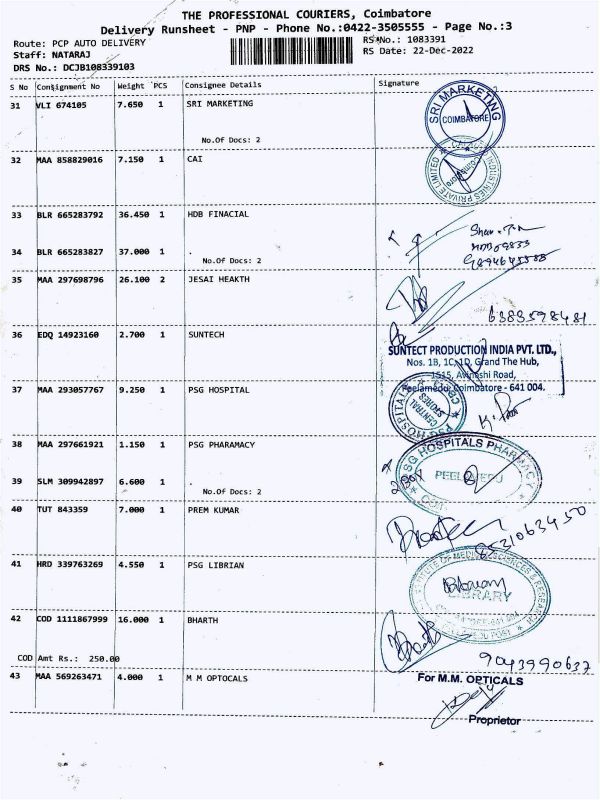 THE PROFESSIONAL COURIERS, Coimbatore
Delivery Runsheet - PNP - Phone No.:0422-3505555 - Page No.:3
Route: PCP AUTO DELIVERY
RS No.: 1083391
Staff: NATARAJ
RS Date: 22-Dec-2022
DRS No.: DCJB108339103
S No Consignment No Weight PCS Consignee Details Signature
31 VLI 674105 7.650 1 SRI MARKETING
SRI MARKETING
COIMBATORE
No.Of Docs: 2
32 MAA 858829016 7.150 1 CAI
INDUSTRIES PRIVATE LIMITED
Coimbatore
33 BLR 665283792 36.450 1 HDB FINACIAL
34 BLR 665283827 37.000 1 .
No.Of Docs: 2
35 MAA 297698796 26.100 2 JESAI HEAKTH
6383598481
36 EDQ 14923160 2.700 1 SUNTECH
SUNTECT PRODUCTION INDIA PVT. LTD.,
Nos. 1B, 1C, 1D, Grand The Hub,
1515, Avinashi Road,
Peelamedu, Coimbatore - 641 004.
37 MAA 293057767 9.250 1 PSG HOSPITAL
PSG HOSPITALS
CENTRAL
STORES
38 MAA 297661921 1.150 1 PSG PHARAMACY
PSG HOSPITALS PHARMACY
PEELAMEDU
39 SLM 309942897 6.600 1 .
No.Of Docs: 2
40 TUT 843359 7.000 1 PREM KUMAR
8531063450
41 HRD 339763269 4.550 1 PSG LIBRIAN
INSTITUTE OF MEDICAL SCIENCES & RESEARCH
LIBRARY
42 COD 1111867999 16.000 1 BHARTH
COD Amt Rs.: 250.00
9043990637
43 MAA 569263471 4.000 1 M M OPTOCALS
For M.M. OPTICALS
Proprietor